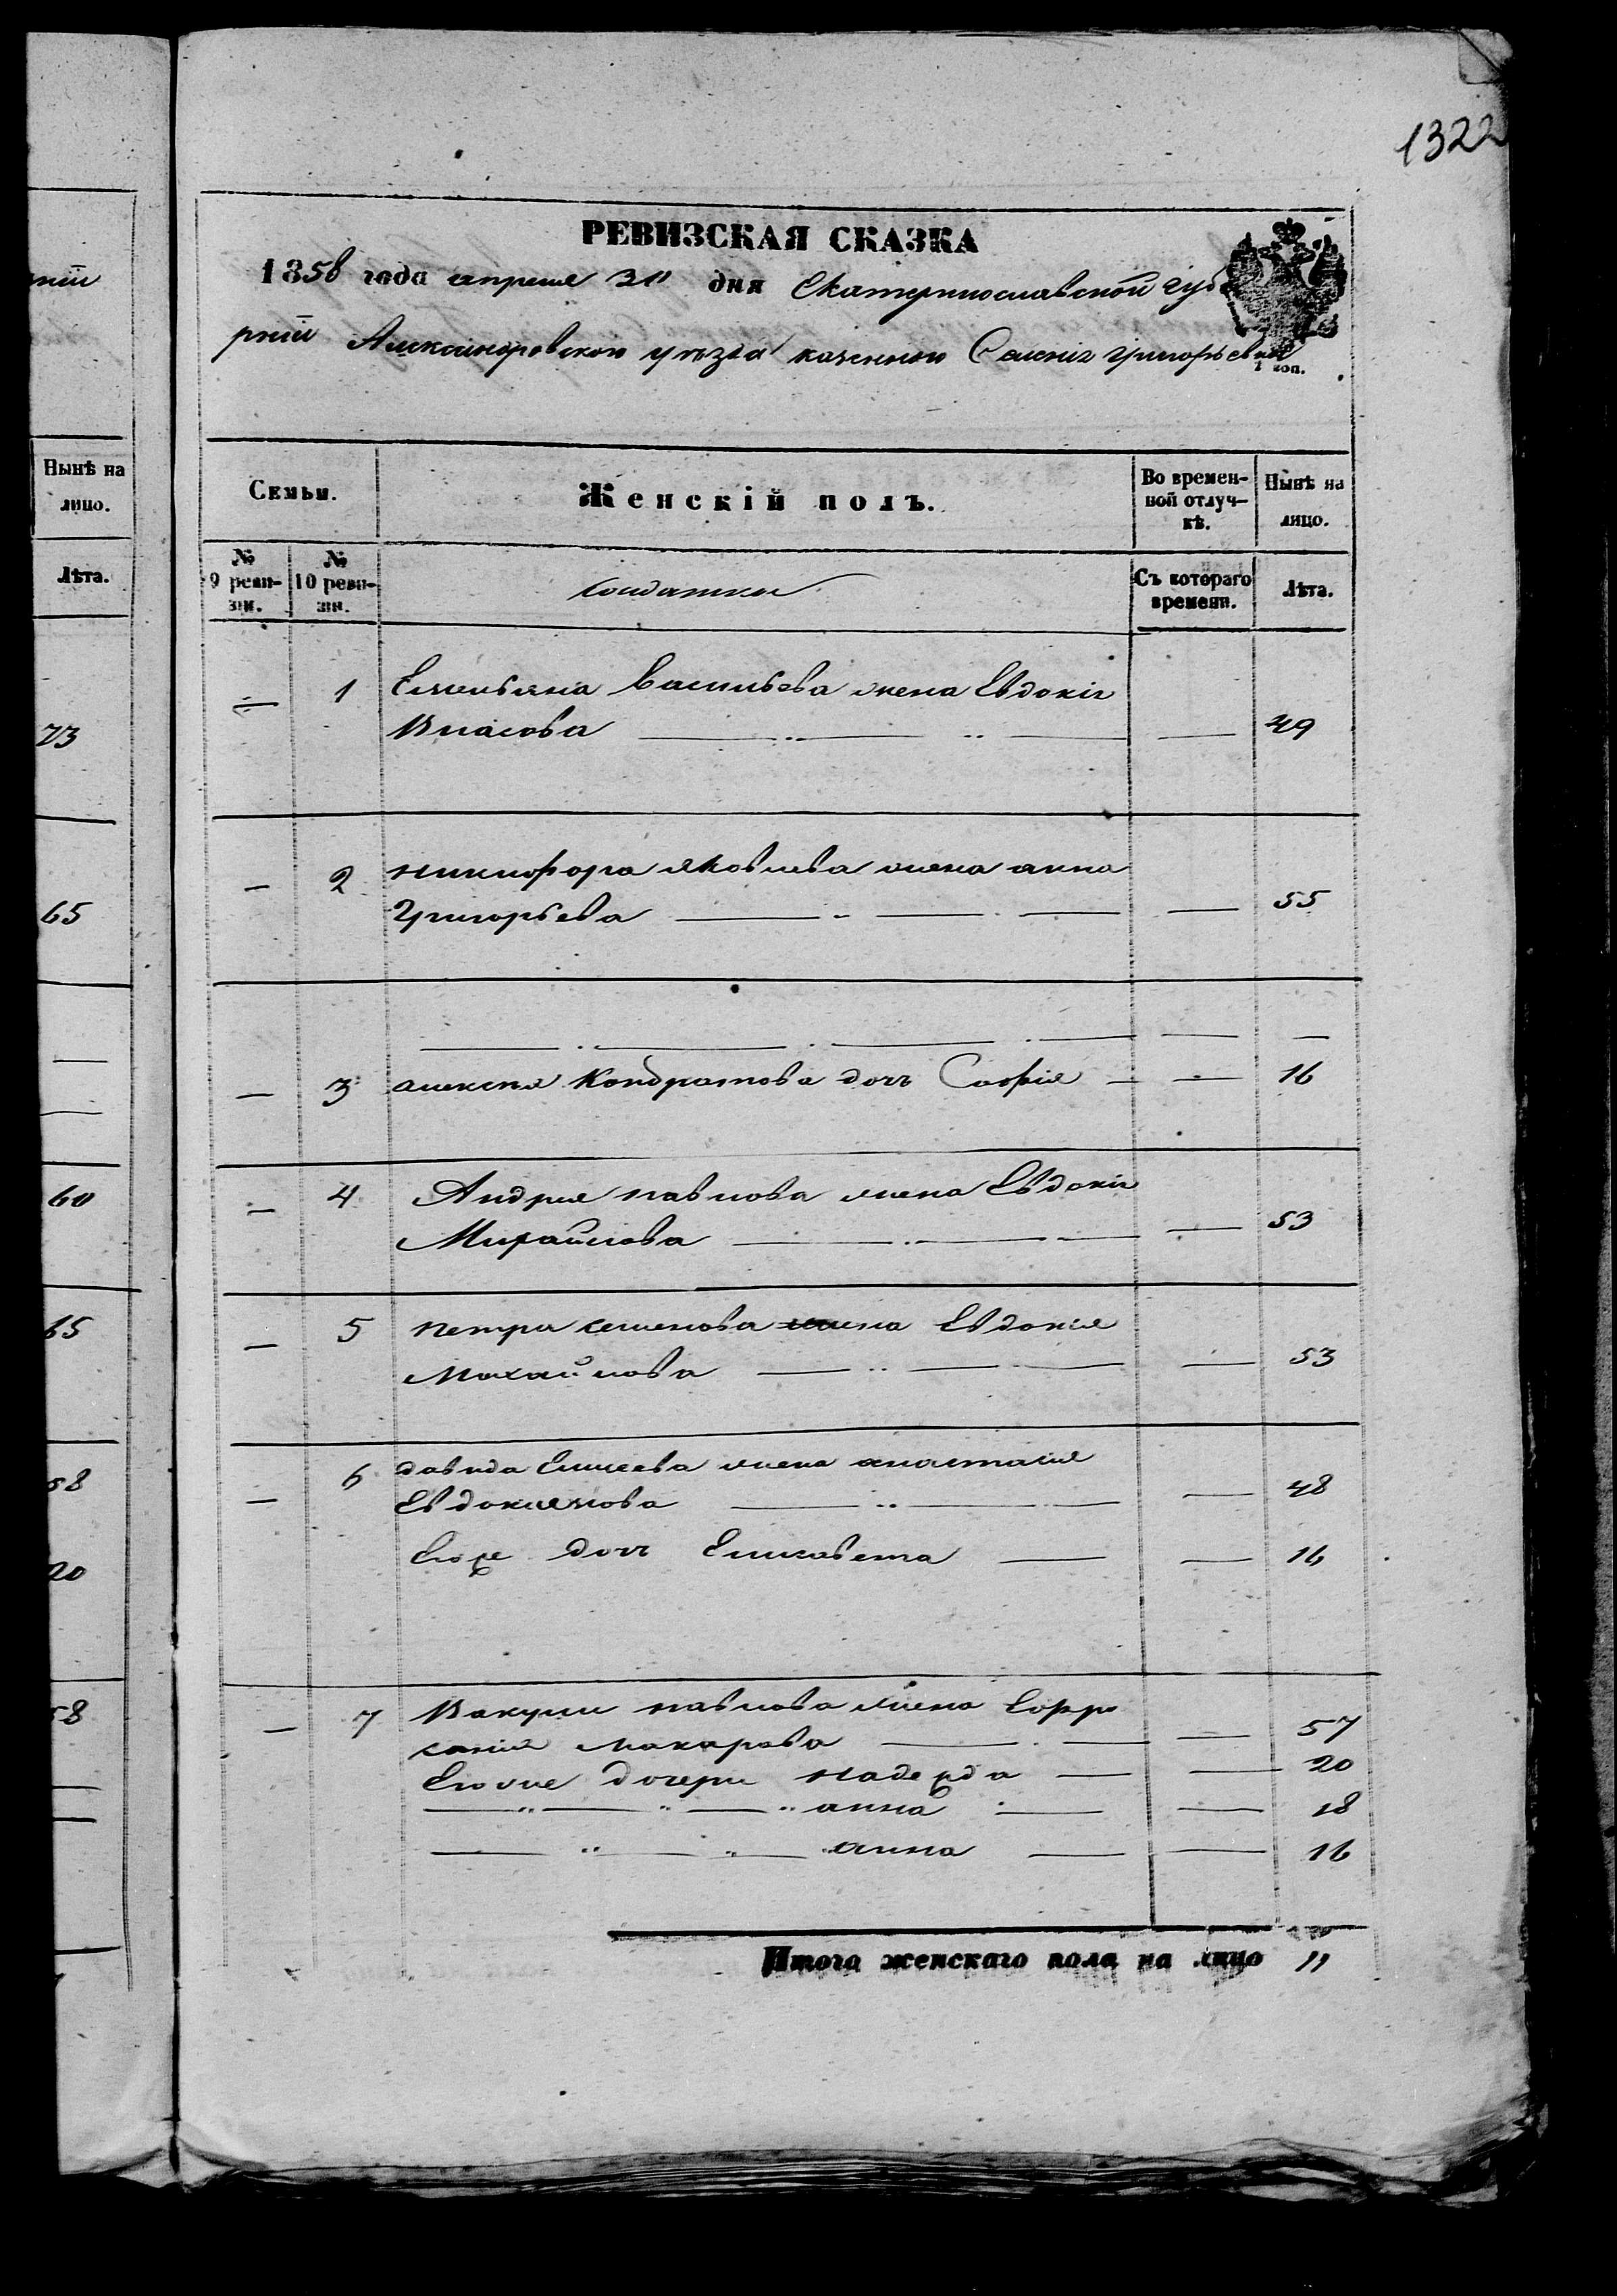 ній
Нынѣ на
лицо.
Лѣта.
73
65
60
65
58
20
58
1322
РЕВИЗСКАЯ СКАЗКА
1858 года апреля 30 дня Екатеринославской губе
рніи Александровского уѣзда казенного Селенія Григорьевки
1 коп.
Семьи.
Женскій полъ.
Во времен-
ной отлуч-
кѣ.
Нынѣ на
лицо.
№
9 реви-
зіи.
№
10 реви-
зіи.
Солдатки
Съ котораго
времени.
Лѣта.
— 1 Емельяна Васильева жена Евдокія
Власова — — 49
— 2 никифора Яковлева жена анна
Григорьева — — 55
— 3 алексея Кондратова дочь Софія — — 16
— 4 Андрея павлова жена Евдокія
Михайлова — — 53
— 5 петра семенова жена Евдокія
Михайлова — — 53
— 6 давида Елисеева жена анастасія
Евдокимова — — 48
Егоже дочь Елисавета — — 16
— 7 Вакулы павлова жена Ефро
санія макарова — — 57
Еговые дочери надежда — — 20
— " — " — " анна — — 18
— " — " — " анна — — 16
Итого женскаго пола на лицо 11